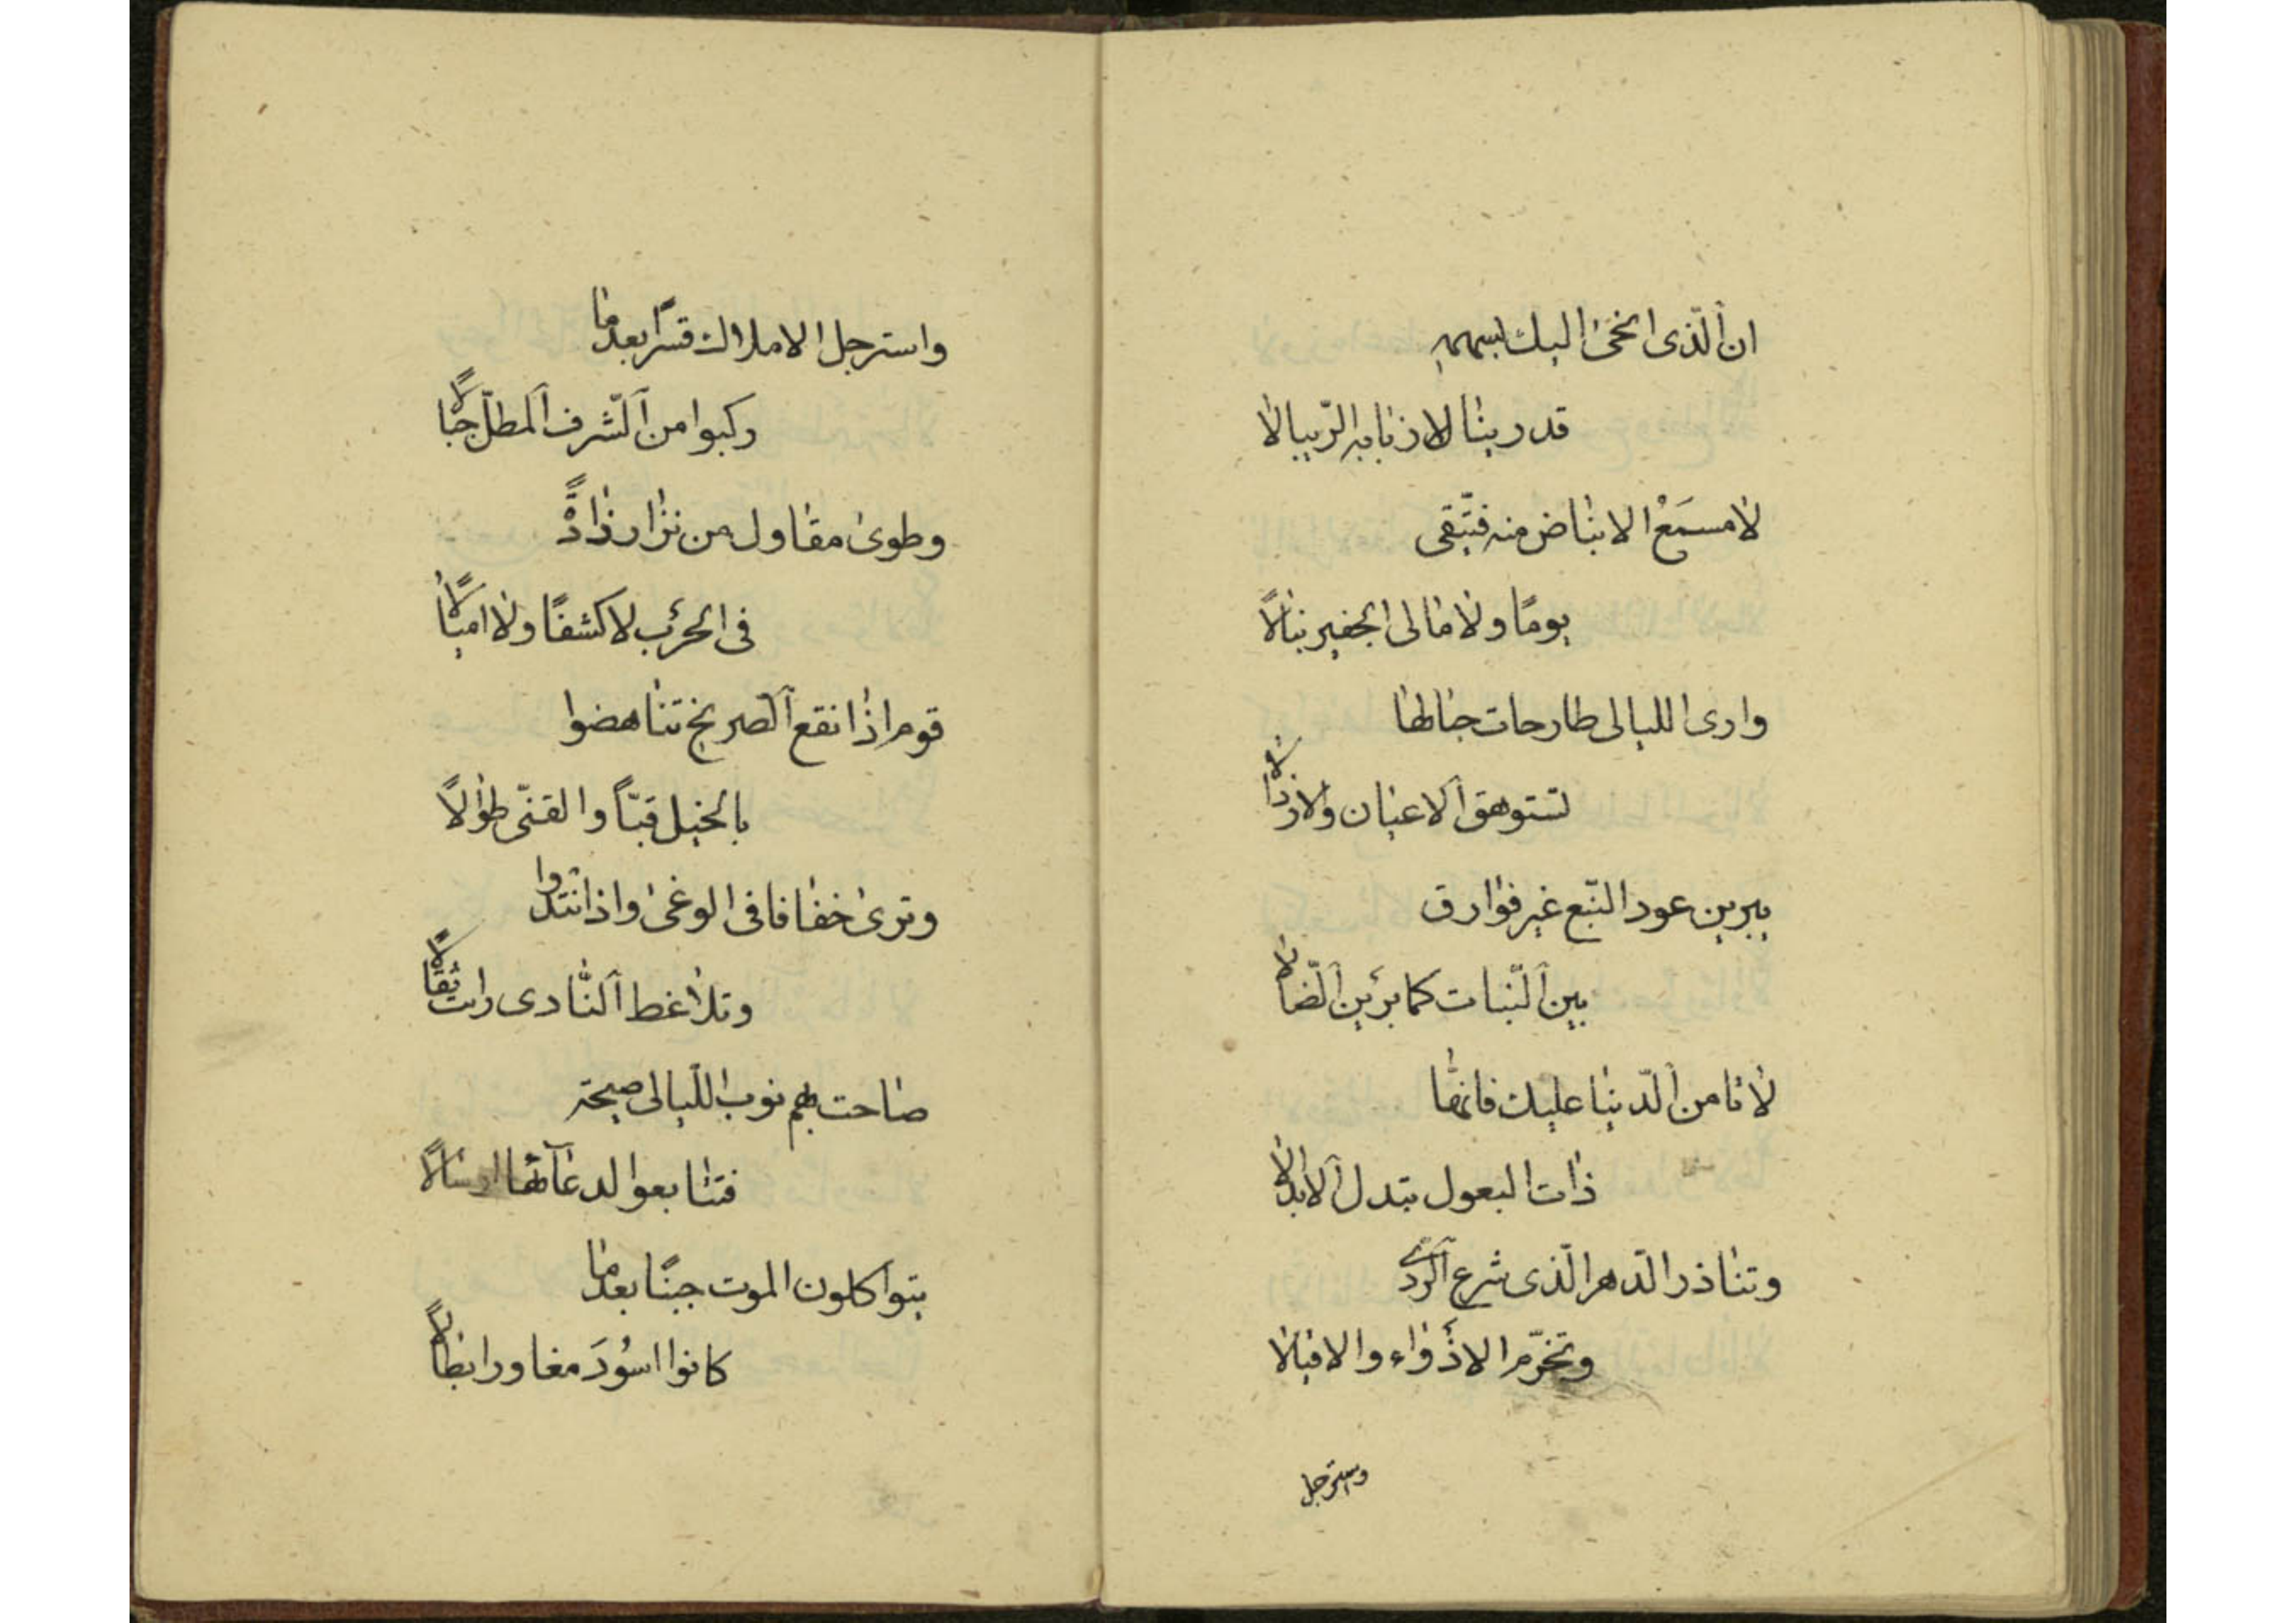 ان الّذى انحىٰ اليك بسهمه
قد رينا لاذنابه الرّيبالا
لا مسمَعْ الانباض منه فتّقى
يومًا ولا مالى الجفير نبالاً
وارى الليالى طارحات حبالها
تستوهق الاعيان والارذالا
يبرين عود النّبع غير فوارق
بين النّبات كما برَين الضّالا
لا تامن الدّنيا عليك فانها
ذات البعول تبدل الابدالا
وتناذر الدّهر الّذى شرع الردى
وتخرّم الاذواء والاقيالا
وسترجل
واسترجل الاملاك قسرًا بعدما
ركبوا من الشّرف المطلّ جبالاً
وطوى مقاول من نزار ذادةً
فى الحرب لا كشفًا ولا اميالاً
قوم اذا نقع الصريخ تناهضوا
بالخيل قبّاً والقنىّ طوالاً
وترى خفافا فى الوغى واذا انتدوا
وتلاغط النّادى رايت ثقالاً
صاحت بهم نوب اللّيالى صيحة
فتتابعوا لدعائها ارسالاً
يتواكلون الموت جبنًا بعدما
كانوا اسُودَ مغاور ابطالاً